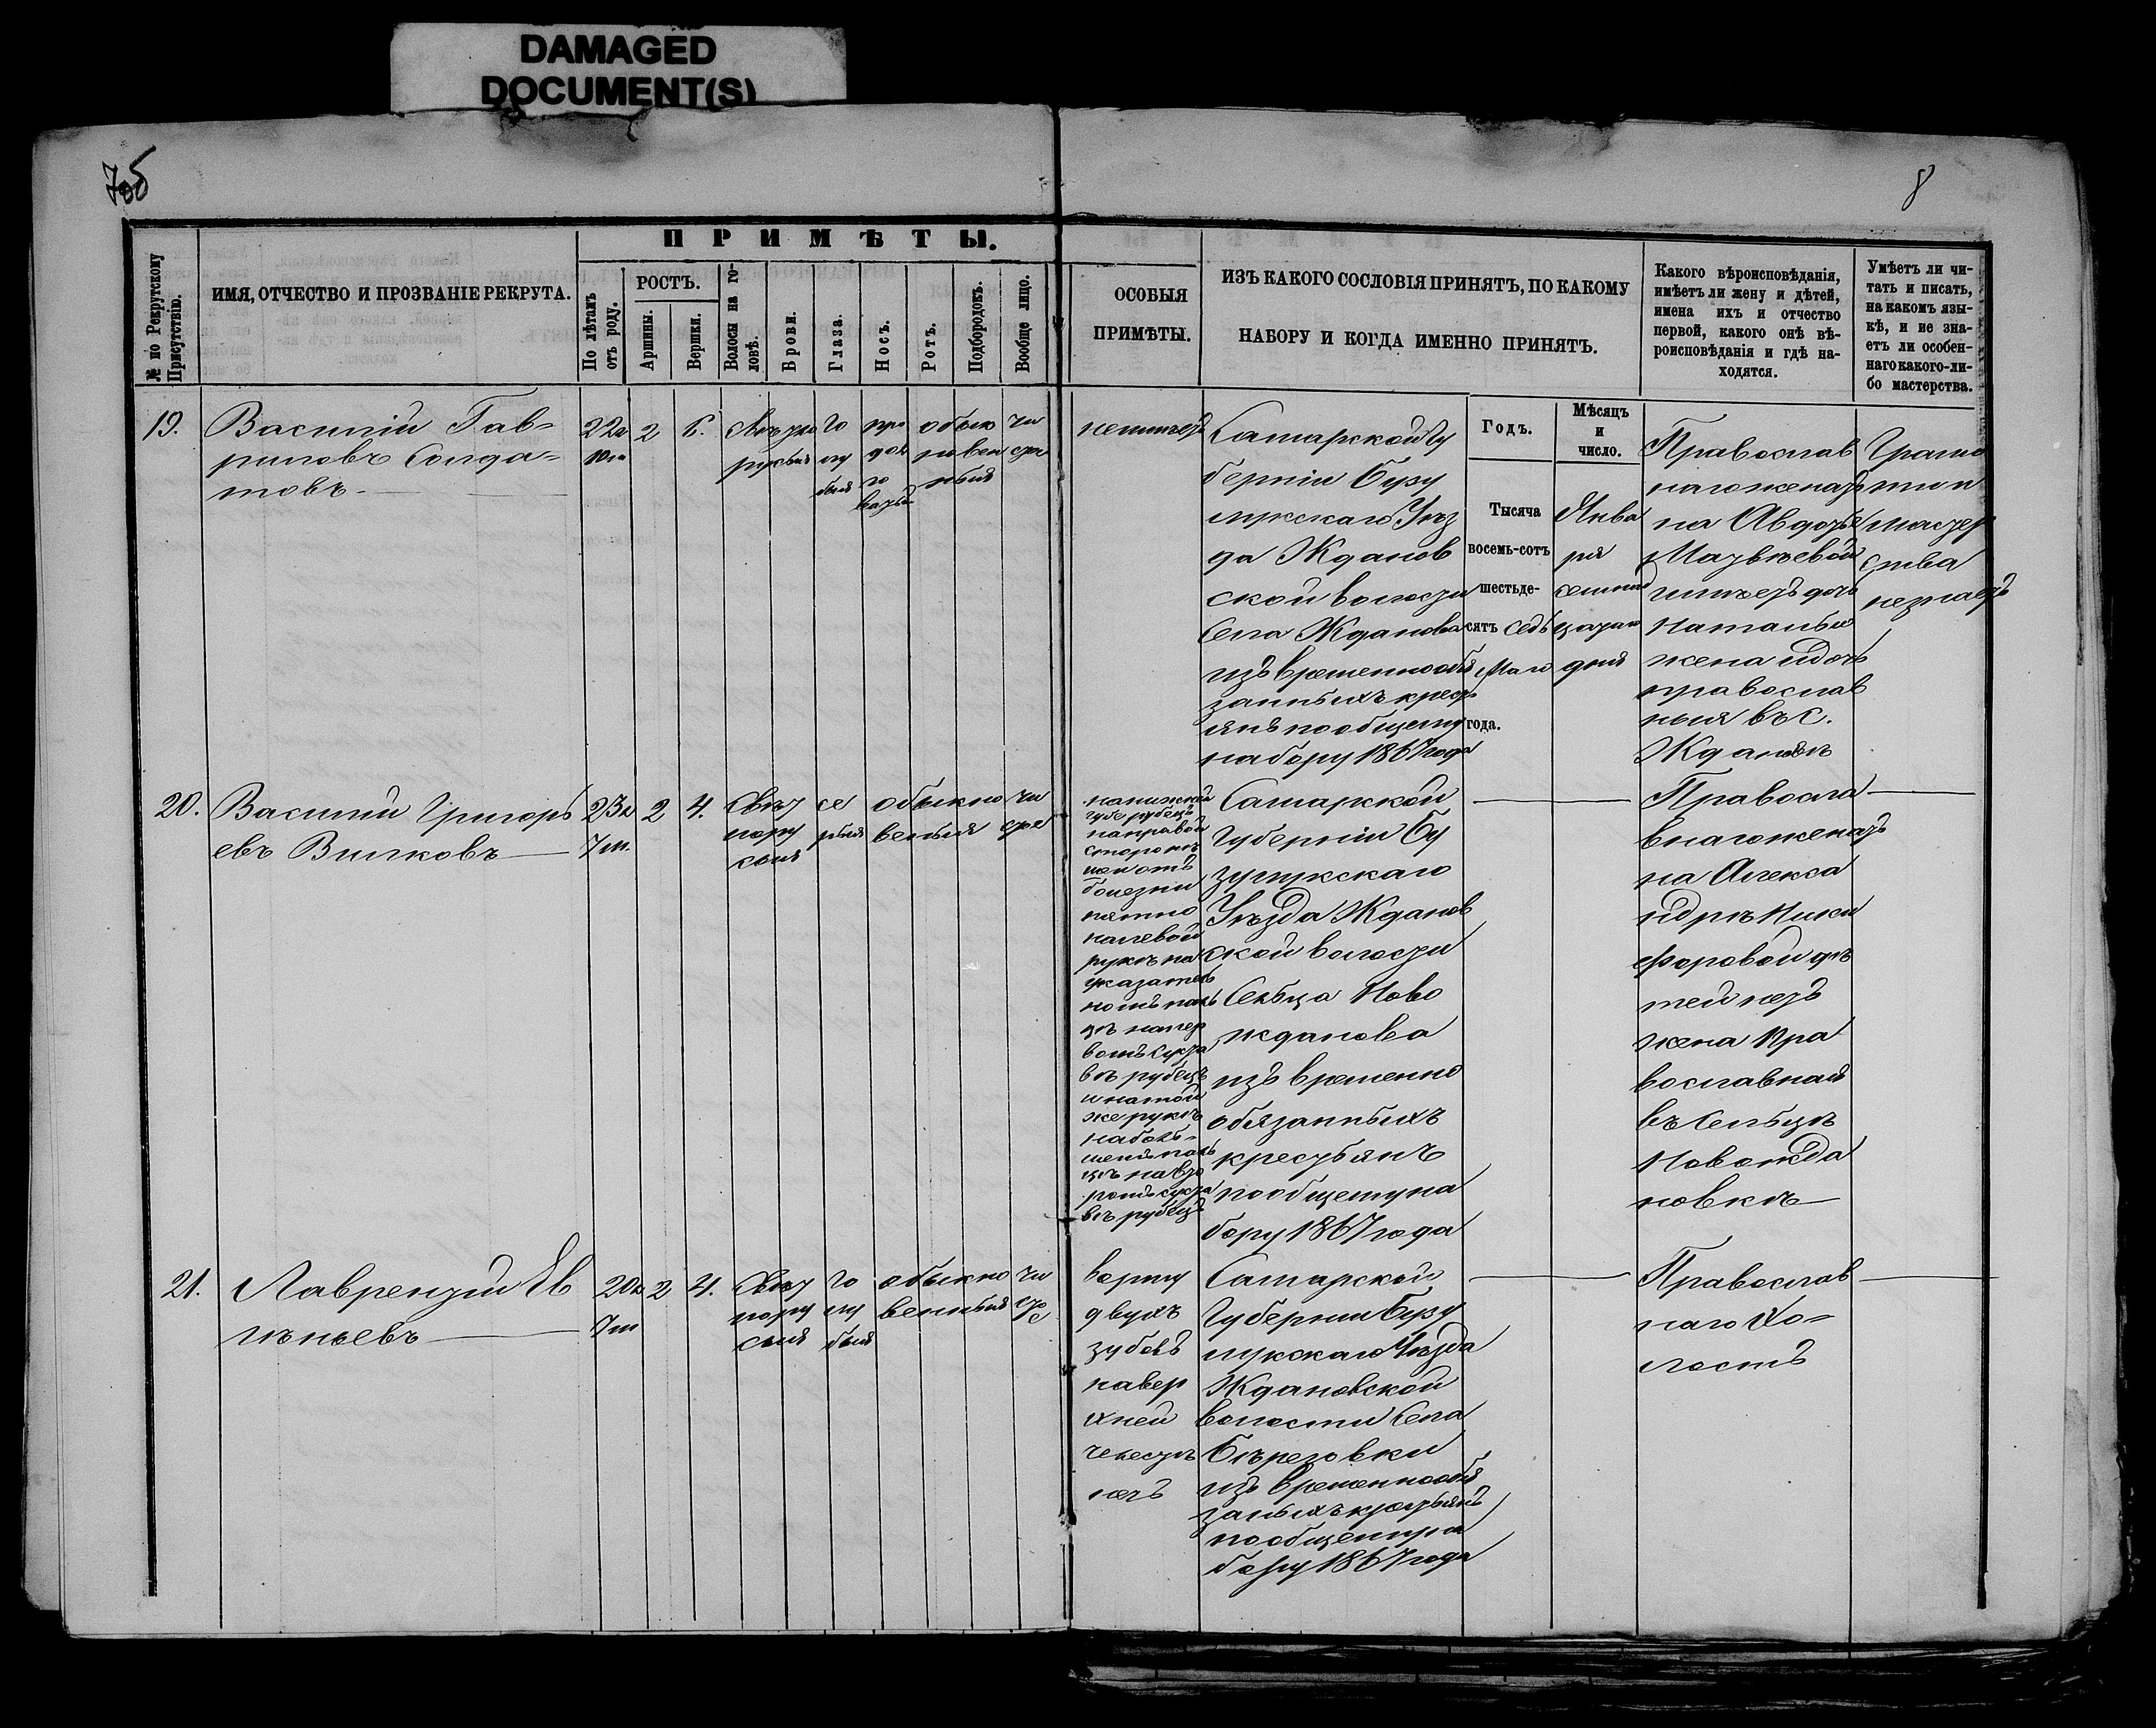 DAMAGED
DOCUMENT(S)
8
ПРИМѢТЫ.
№ по Рекрутскому
Присутствію.
ИМЯ, ОТЧЕСТВО И ПРОЗВАНІЕ РЕКРУТА.
По лѣтамъ
отъ роду.
РОСТЪ.
Аршины.
Вершки.
Волосы на го-
ловѣ.
Брови.
Глаза.
Носъ.
Ротъ.
Подбородокъ.
Вообще лицо.
ОСОБЫЯ
ПРИМѢТЫ.
ИЗЪ КАКОГО СОСЛОВІЯ ПРИНЯТЪ, ПО КАКОМУ
НАБОРУ И КОГДА ИМЕННО ПРИНЯТЪ.
Какого вѣроисповѣданія,
имѣетъ ли жену и дѣтей,
имена ихъ и отчество
первой, какого онѣ вѣ-
роисповѣданія и гдѣ на-
ходятся.
Умѣетъ ли чи-
тать и писать,
на какомъ язы-
кѣ, и не зна-
етъ ли особен-
наго какого-ли-
бо мастерства.
19.
Василій Гав-
риловъ Солда-
товъ
22л
10м
2
6.
русыя
го
лу
быя
про
дол
го
ватый
обык
новен
ныя
чи
стое
неимѣетъ
Самарской Гу
берніи Бузу
лукскаго Уѣз
да Жданов
ской волости
Села Жданова
изъ временнообя
занныхъ крест
янъ по общему
набору 1867 года
Годъ.
Тысяча
восемь-сотъ
шестьде-
сятъ седь
маго
года.
Мѣсяцъ
и
число.
Янва
ря
семнад
цатаго
дня
Православ
наго женатъ
на Авдотье
Матвѣевой
имѣетъ дочь
Наталью
жена и дочь
православ
ныя въ с.
Ждановѣ
Грамо
ты и
мастер
ства
незнаетъ
20.
Василій Григорь
евъ Вилковъ
23л
7м.
2
4.
Свѣт
лору
сыя
се
рыя
обыкно
венныя
чи
стое
на нижней
губе рубецъ
на правой
стороне
шеи отъ
болезни
пятно
на левой
рукѣ на
указатель
номъ паль
цѣ на пер
вомъ суста
вѣ рубецъ
и на той
же рукѣ
на боль-
шемъ паль
цѣ на вто
ромъ суста
вѣ рубецъ
Самарской
Губерніи Бу
зулукскаго
Уѣзда Жданов
ской волости
Сельца Ново
жданова
изъ временно
обязанныхъ
крестьянъ
по общему на
бору 1867 года
Правосла
внаго женатъ
на Алекса
ндрѣ Ники
форовой дѣ
тей нетъ
жена Пра
вославная
въ Сельцѣ
Новожда
новкѣ
21.
Лаврентій Ев
лѣньевъ
20л
7м
2
4.
Свѣт
лору
сыя
го
лу
быя
обыкно
венныя
чи
сто
е
ворту
двухъ
зубовъ
навер
хней
челюсти
нетъ
Самарской
Губерніи Бузу
лукскаго Уѣзда
Ждановской
волости Села
Бѣрезовки
изъ временнообя
заныхъ крестьянъ
по общему на
бору 1867 года
Православ
наго Хо-
лостъ